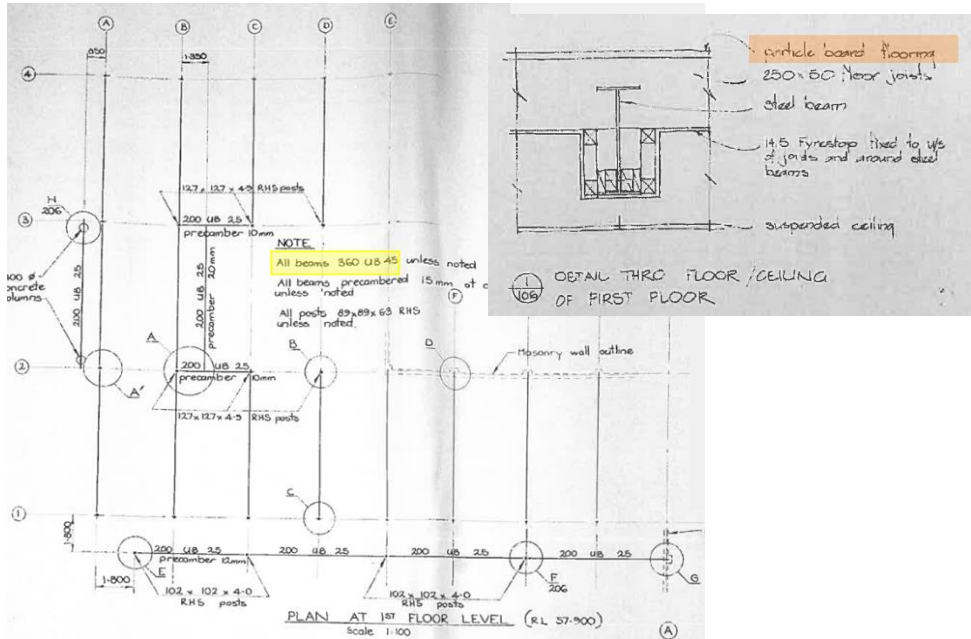 A
B
C
D
E
350
1·350
4
127 x 127 x 4·9 RHS posts
H
206
3
200 UB 25
precamber 10mm
NOTE
All beams 360 UB 45 unless noted
All beams precambered 15mm at
unless noted
All posts 89x89x63 RHS
unless noted.
F
concrete
columns
200 UB 25
200 UB 25
precamber 20mm
A
B
D
Masonry wall outline
2
200 UB 25
precamber 10mm
A'
127x127x4·9 RHS posts
C
1
1·800
200 UB 25
precamber 12mm
200 UB 25
200 UB 25
200 UB 25
1·800
E
F
206
G
102 x 102 x 4·0
RHS posts
102 x 102 x 4·0
RHS posts
PLAN AT 1ST FLOOR LEVEL (RL 57·900)
Scale 1:100
A
particle board flooring
250 x 50 floor joists
steel beam
14.5 Fyrestop fixed to u/s
of joists and around steel
beams
suspended ceiling
1
106
DETAIL THRO FLOOR/CEILING
OF FIRST FLOOR